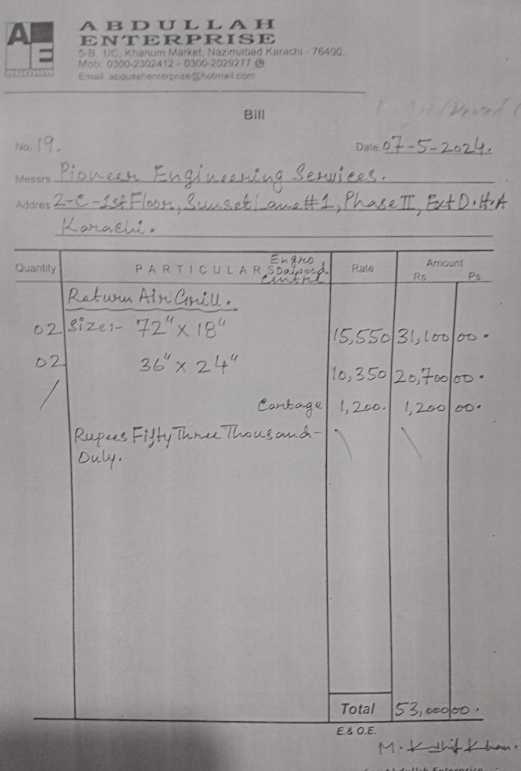 AE
ABDULLAH
ENTERPRISE
5-B, 1/C, Khanum Market, Nazimabad Karachi - 76400.
Mob: 0300-2302412 - 0300-2029277
Email: abdullahenterprise@hotmail.com
Bill
No. 19.
Date 07-5-2024.
Messrs Pioneer Engineering Services.
Addres 2-C-1st Floor, Sunset Lane #1, Phase II, Ext D.H.A
Karachi.
Quantity PARTICULARS Engro Rate Amount
Rs. Ps.
Return Air Grill.
02 Size:- 72" x 18" 15,550 31,100 00.
02 36" x 24" 10,350 20,700 00.
Cartage 1,200. 1,200 00.
Rupees Fifty Three Thousand-
Only.
Total 53,000 00.
E.& O.E.